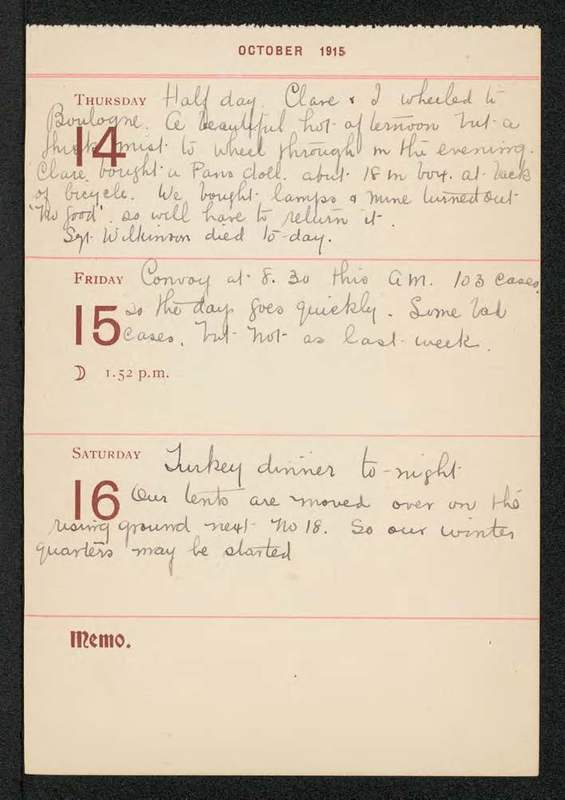 OCTOBER 1915
THURSDAY Half day. Clare & I wheeled to
Boulogne. A beautiful hot afternoon but a
14 thick mist to wheel through in the evening.
Clare bought a Paris doll. about 18 in box. at back
of bicycle. We bought lamps & mine turned out
'No good'. so will have to return it.
Sgt. Wilkinson died to-day.
FRIDAY Convoy at 8.30 this a.m. 103 cases.
15 so the day goes quickly. Some bad
cases, but not as last week.
☽ 1.52 p.m.
SATURDAY Turkey dinner to-night
16 Our tents are moved over on the
rising ground next No 18. So our winter
quarters may be started
Memo.